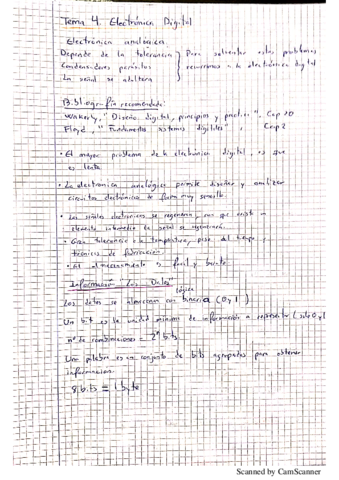 Tema 4. Electrónica Digital
Electrónica analógica.
Depende de la tolerancia } Para solventar estos problemas
Condensadores parásitos recurrimos a la electrónica digital
La señal se altera
Bibliografía recomendada:
Wakerly, "Diseño digital, principios y practicas". Cap
Floyd, "Fundamentos sistemas digitales", Cap 2
• El mayor problema de la electrónica digital, es que
es lenta.
• La electronica analógica permite diseñar y analizar
circuitos electrónicos de forma muy sencilla
• Las señales electronicas se regeneran, que existe
elemento intermedio la señal se
• Gran tolerancia a la temperatura, paso del tiempo y
técnicas de fabricación.
• El almacenamiento es facil y barato
Información "Los Datos"
Los datos se almacenan con lógica binaria (0,1)
Un bit es la unidad mínima de información a representar (solo 0,1)
nº de combinaciones = 2ⁿ bits
Una palabra es un conjunto de bits agrupados para obtener
informacion.
8 bits = 1 byte
Scanned by CamScanner